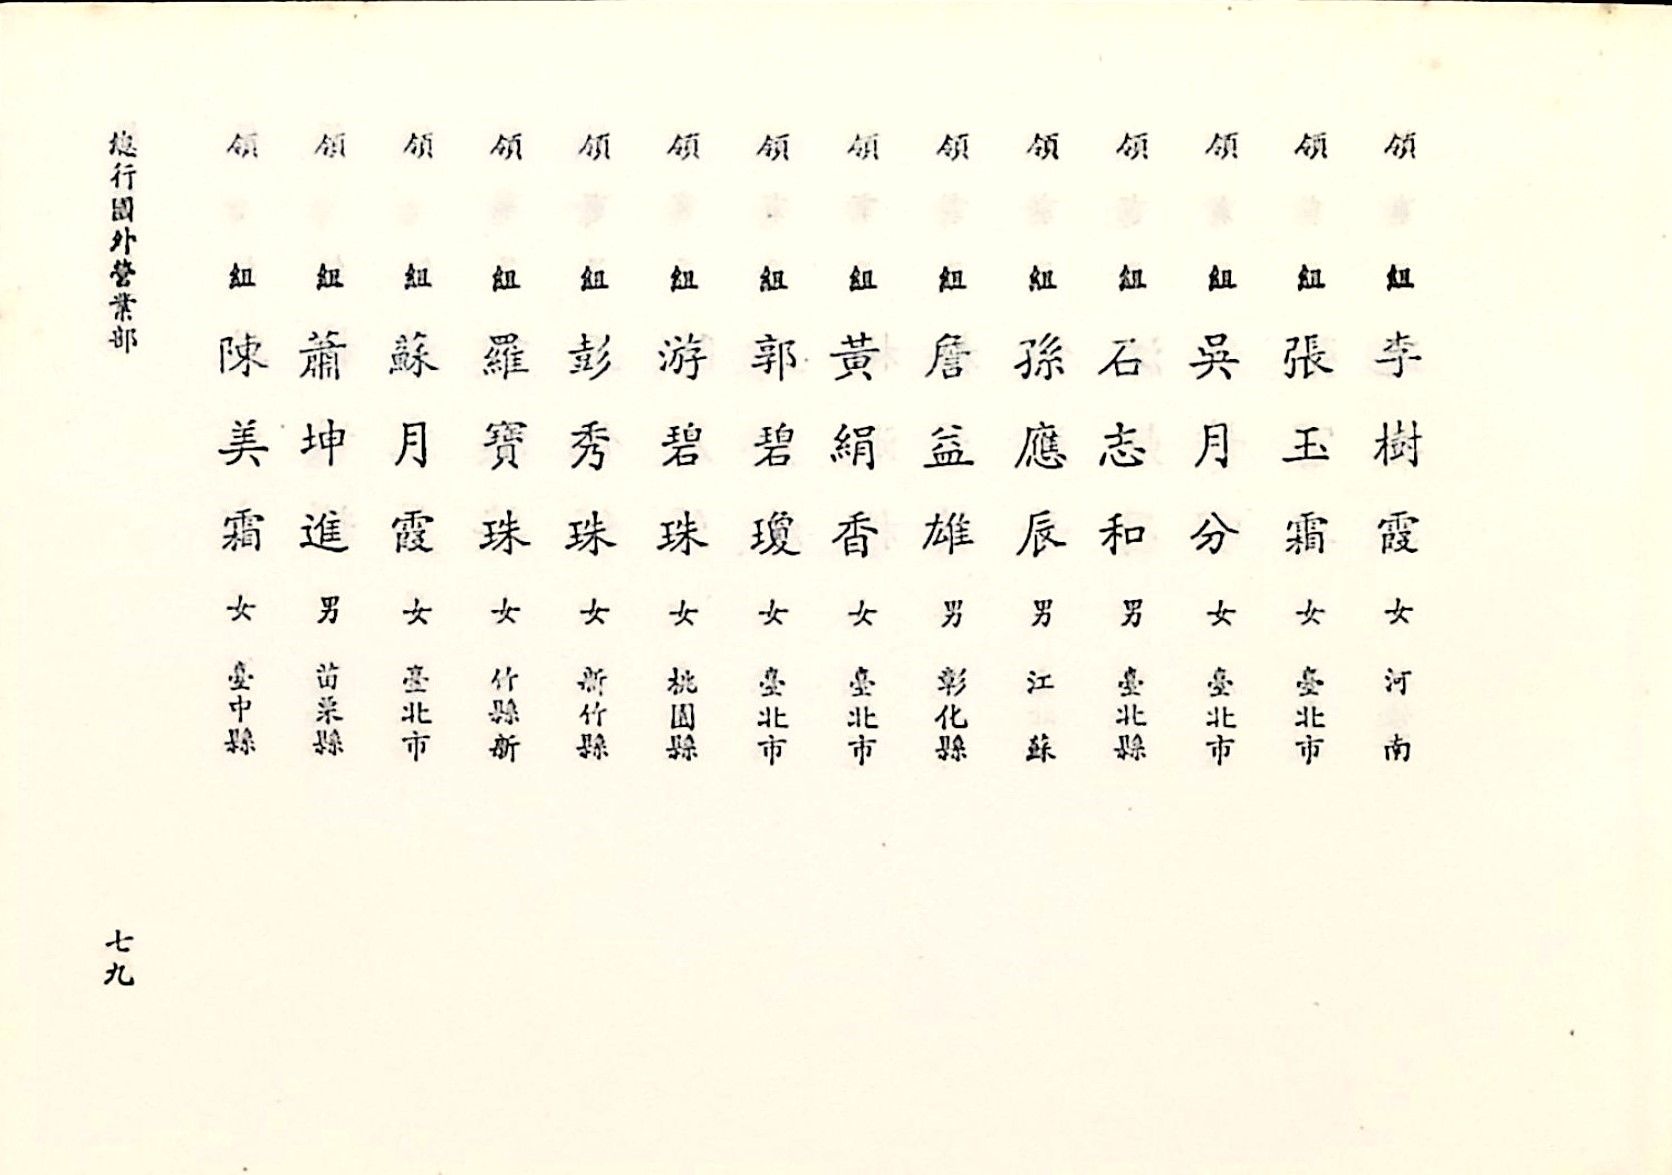 領組李樹霞女河南
領組張玉霜女臺北市
領組吳月分女臺北市
領組石志和男臺北縣
領組孫應辰男江蘇
領組詹益雄男彰化縣
領組黃絹香女臺北市
領組郭碧瓊女臺北市
領組游碧珠女桃園縣
領組彭秀珠女新竹縣
領組羅寶珠女竹縣新
領組蘇月霞女臺北市
領組蕭坤進男苗栗縣
領組陳美霜女臺中縣
總行國外營業部
七九